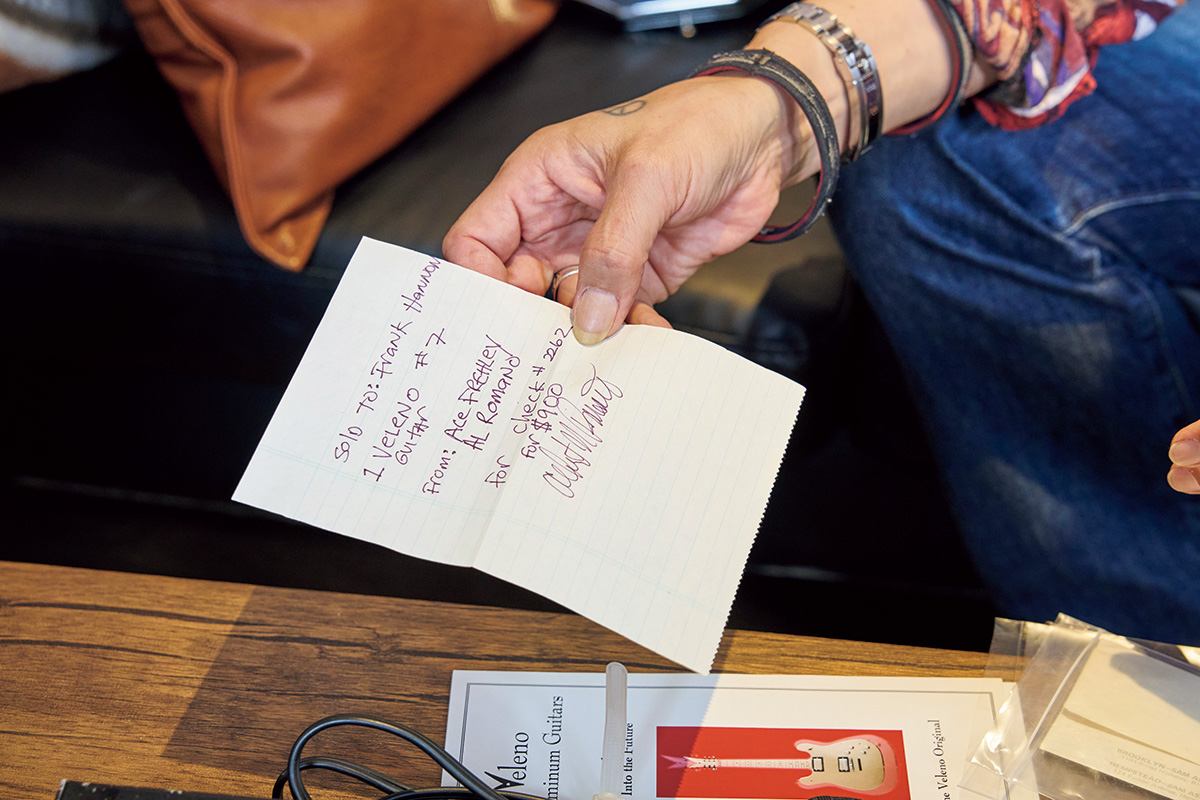 SOLD TO: FRANK HANNON
1 VELENO #7
GUITAR
FROM: ACE FREHLEY
AL ROMANO
FOR Check # 2262
FOR $900
Veleno
minum Guitars
Into the Future
he Veleno Original
BROOKLYN-SAM
HEMPSTEAD-SAM AS